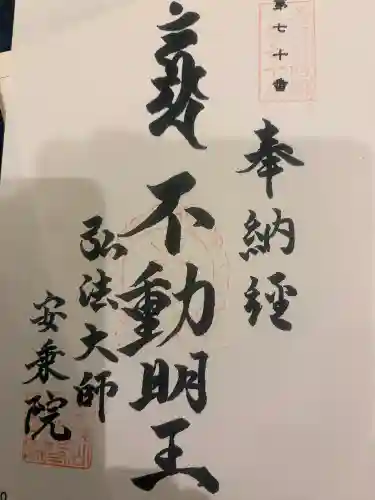 第七十番
奉納経
不動明王
弘法大師
安乗院